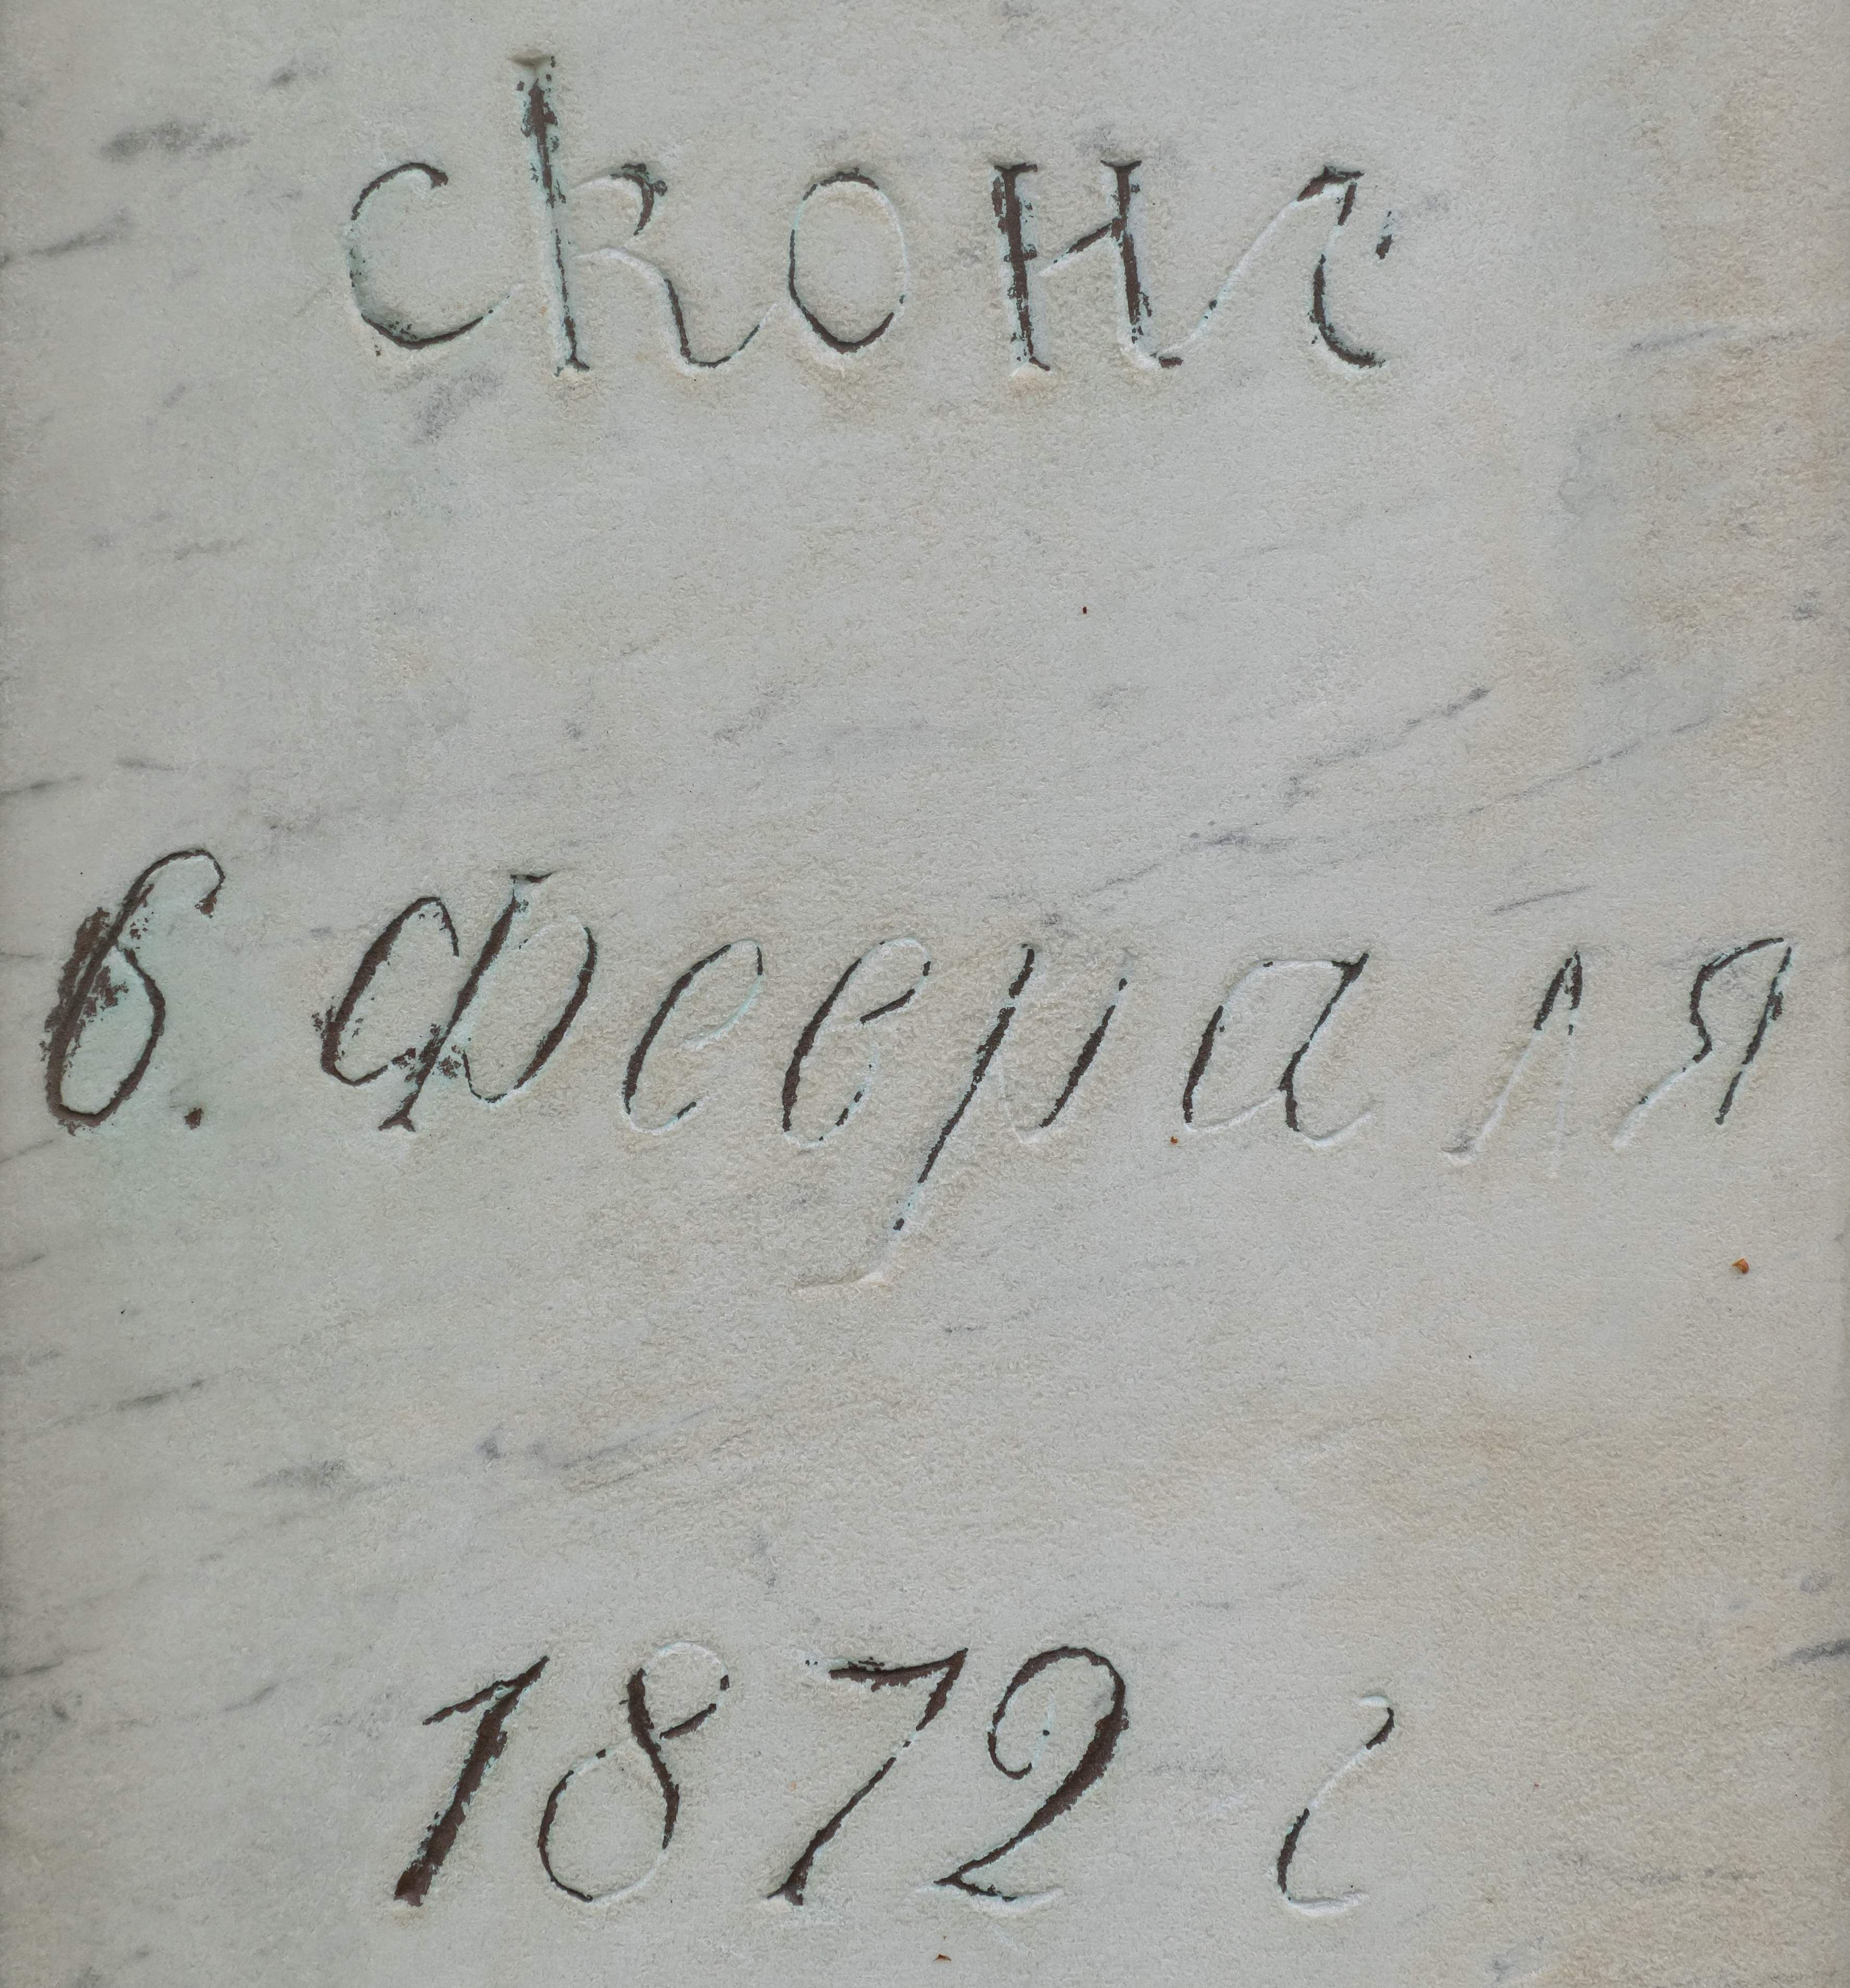 сконч
6. Февраля
1872 г